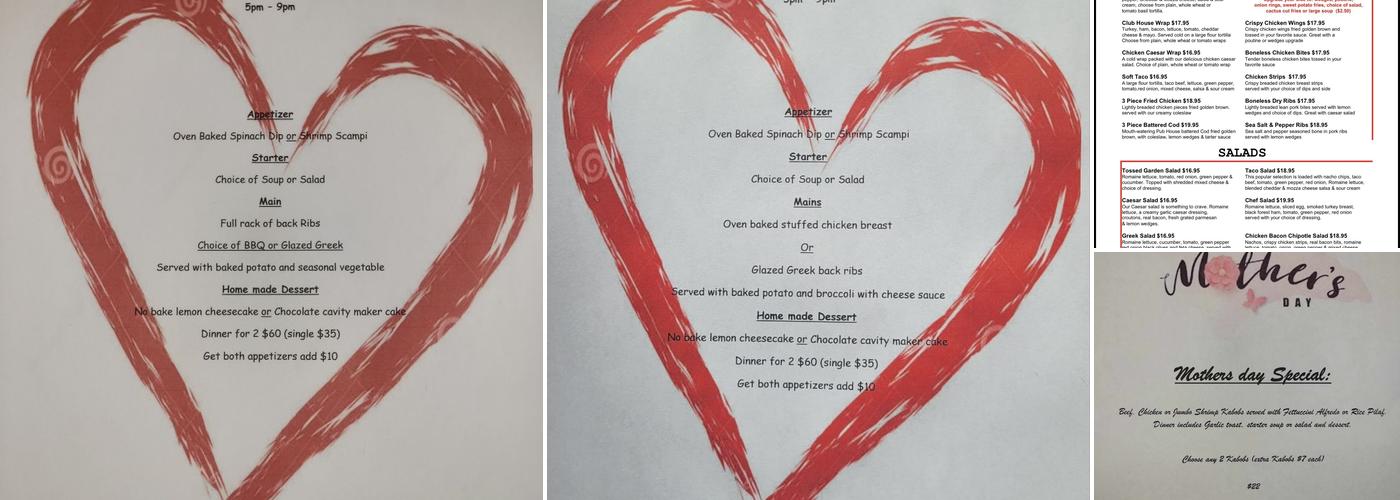 5pm - 9pm
Appetizer
Oven Baked Spinach Dip or Shrimp Scampi
Starter
Choice of Soup or Salad
Main
Full rack of back Ribs
Choice of BBQ or Glazed Greek
Served with baked potato and seasonal vegetable
Home made Dessert
No bake lemon cheesecake or Chocolate cavity maker cake
Dinner for 2 $60 (single $35)
Get both appetizers add $10
Appetizer
Oven Baked Spinach Dip or Shrimp Scampi
Starter
Choice of Soup or Salad
Mains
Oven baked stuffed chicken breast
Or
Glazed Greek back ribs
Served with baked potato and broccoli with cheese sauce
Home made Dessert
No bake lemon cheesecake or Chocolate cavity maker cake
Dinner for 2 $60 (single $35)
Get both appetizers add $10
cream, choose from plain, whole wheat or
tomato basil tortilla.
Club House Wrap $17.95
Turkey, ham, bacon, lettuce, tomato, cheddar
cheese & mayo. Served cold on a large flour tortilla
Choose from plain, whole wheat or tomato wraps
Chicken Caesar Wrap $16.95
A cold wrap packed with our delicious chicken caesar
salad. Choice of plain, whole wheat or tomato wrap
Soft Taco $16.95
A large flour tortilla, taco beef, lettuce, green pepper,
tomato,red onion, mixed cheese, salsa & sour cream
3 Piece Fried Chicken $18.95
Lightly breaded chicken pieces fried golden brown.
served with our creamy coleslaw
3 Piece Battered Cod $19.95
Mouth-watering Pub House battered Cod fried golden
brown, with coleslaw, lemon wedges & tarter sauce
onion rings, sweet potato fries, choice of salad,
cactus cut fries or large soup ($2.50)
Crispy Chicken Wings $17.95
Crispy chicken wings fried golden brown and
tossed in your favorite sauce. Great with a
poutine or wedges upgrade
Boneless Chicken Bites $17.95
Tender boneless chicken bites tossed in your
favorite sauce
Chicken Strips $17.95
Crispy breaded chicken breast strips
served with your choice of dips and side
Boneless Dry Ribs $17.95
Lightly breaded lean pork bites served with lemon
wedges and choice of dips. Great with caesar salad
Sea Salt & Pepper Ribs $18.95
Sea salt and pepper seasoned bone in pork ribs
served with lemon wedges
SALADS
Tossed Garden Salad $16.95
Romaine lettuce, tomato, red onion, green pepper &
cucumber. Topped with shredded mixed cheese &
choice of dressing.
Caesar Salad $16.95
Our Caesar salad is something to crave. Romaine
lettuce, a creamy garlic caesar dressing,
croutons, real bacon, fresh grated parmesan
& lemon wedges.
Greek Salad $16.95
Romaine lettuce, cucumber, tomato, green pepper
Taco Salad $18.95
This popular selection is loaded with nacho chips, taco
beef, tomato, green pepper, red onion, Romaine lettuce,
blended cheddar & mozza cheese salsa & sour cream
Chef Salad $19.95
Romaine lettuce, sliced egg, smoked turkey breast,
black forest ham, tomato, green pepper, red onion
served with your choice of dressing.
Chicken Bacon Chipotle Salad $18.95
Nachos, crispy chicken strips, real bacon bits, romaine
Mother's
DAY
Mothers day Special:
Beef, Chicken or Jumbo Shrimp Kabobs served with Fettuccini Alfredo or Rice Pilaf.
Dinner includes Garlic toast, starter soup or salad and dessert.
Choose any 2 Kabobs (extra Kabobs $7 each)
$22